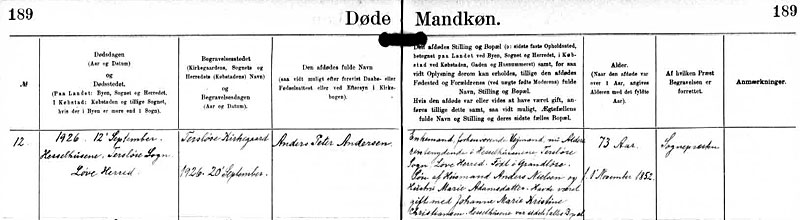 189
Døde Mandkøn.
189
№
Dødsdagen
(Aar og Datum).
og
Dødsstedet.
(Paa Landet: Byen, Sognet og Herredet.
I Købstad: Købstaden og tillige Sognet,
hvis der i Byen er mere end 1 Sogn).
Begravelsesstedet
(Kirkegaardens, Sognets og
Herredets (Købstadens) Navn)
og
Begravelsesdagen
(Aar og Datum).
Den afdødes fulde Navn
(saa vidt muligt efter forevist Daabs- eller
Fødselsattest eller ved Eftersyn i Kirke-
bogen).
Den afdødes Stilling og Bopæl (ɔ: sidste faste Opholdssted,
betegnet paa Landet ved Byen, Sognet og Herredet, i Køb-
stad ved Købstaden, Gaden og Husnummeret) samt, for saa
vidt Oplysning derom kan erholdes, tillige den afdødes
Fødested og Forældrenes (ved uægte fødte Moderens) fulde
Navn, Stilling og Bopæl.
Hvis den afdøde var eller vides at have været gift, an-
føres tillige dette samt, saa vidt muligt, Ægtefællens
fulde Navn og Stilling og deres sidste fælles Bopæl.
Alder.
(Naar den afdøde var
over 1 Aar, angives
Alderen med det fyldte
Aar).
Af hvilken Præst
Begravelsen er
forrettet.
Anmærkninger.
12.
1926. 12' September.
Hesselhusene. Terslöse Sogn.
Löve Herred.
Terslöse Kirkegaard
1926. 20' September.
Anders Peter Andersen
Enkemand, Husmand, nu Alders
i Hesselhusene Terslöse
Sogn Löve Herred. Född i
Sön af Husmand Anders Nielsen og
Hustru Marie Adamsdatter. Havde været
gift med Johanne Marie Kristine
Christiansen. Hesselhusene var sidste fælles Bopæl
73 Aar.
f. 1' November 1852.
Sognepræsten